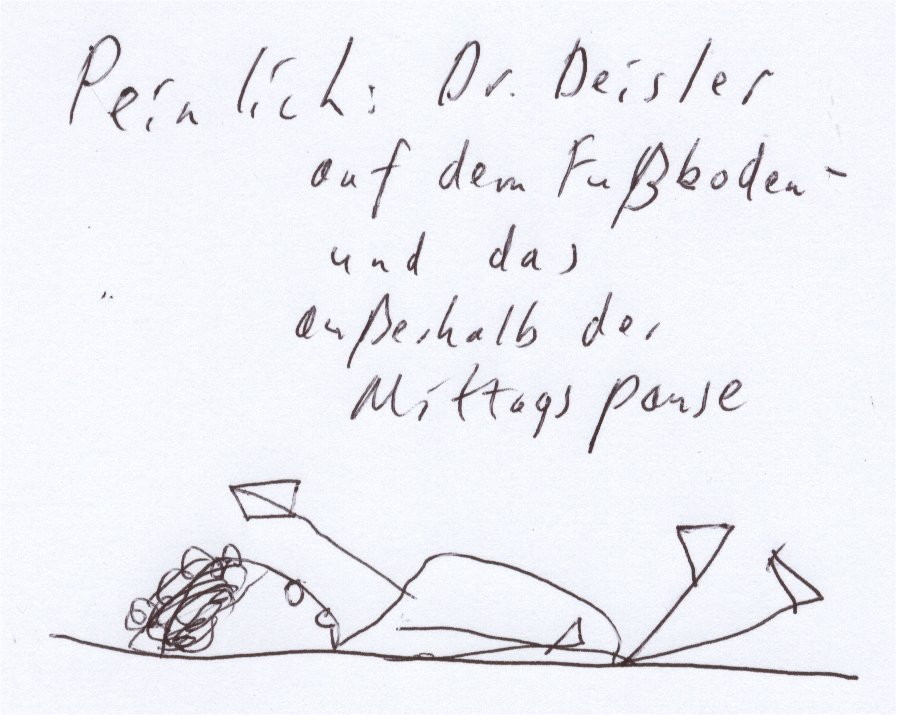 Peinlich: Dr. Deisler
auf dem Fußboden-
und das
außerhalb der
Mittagspause